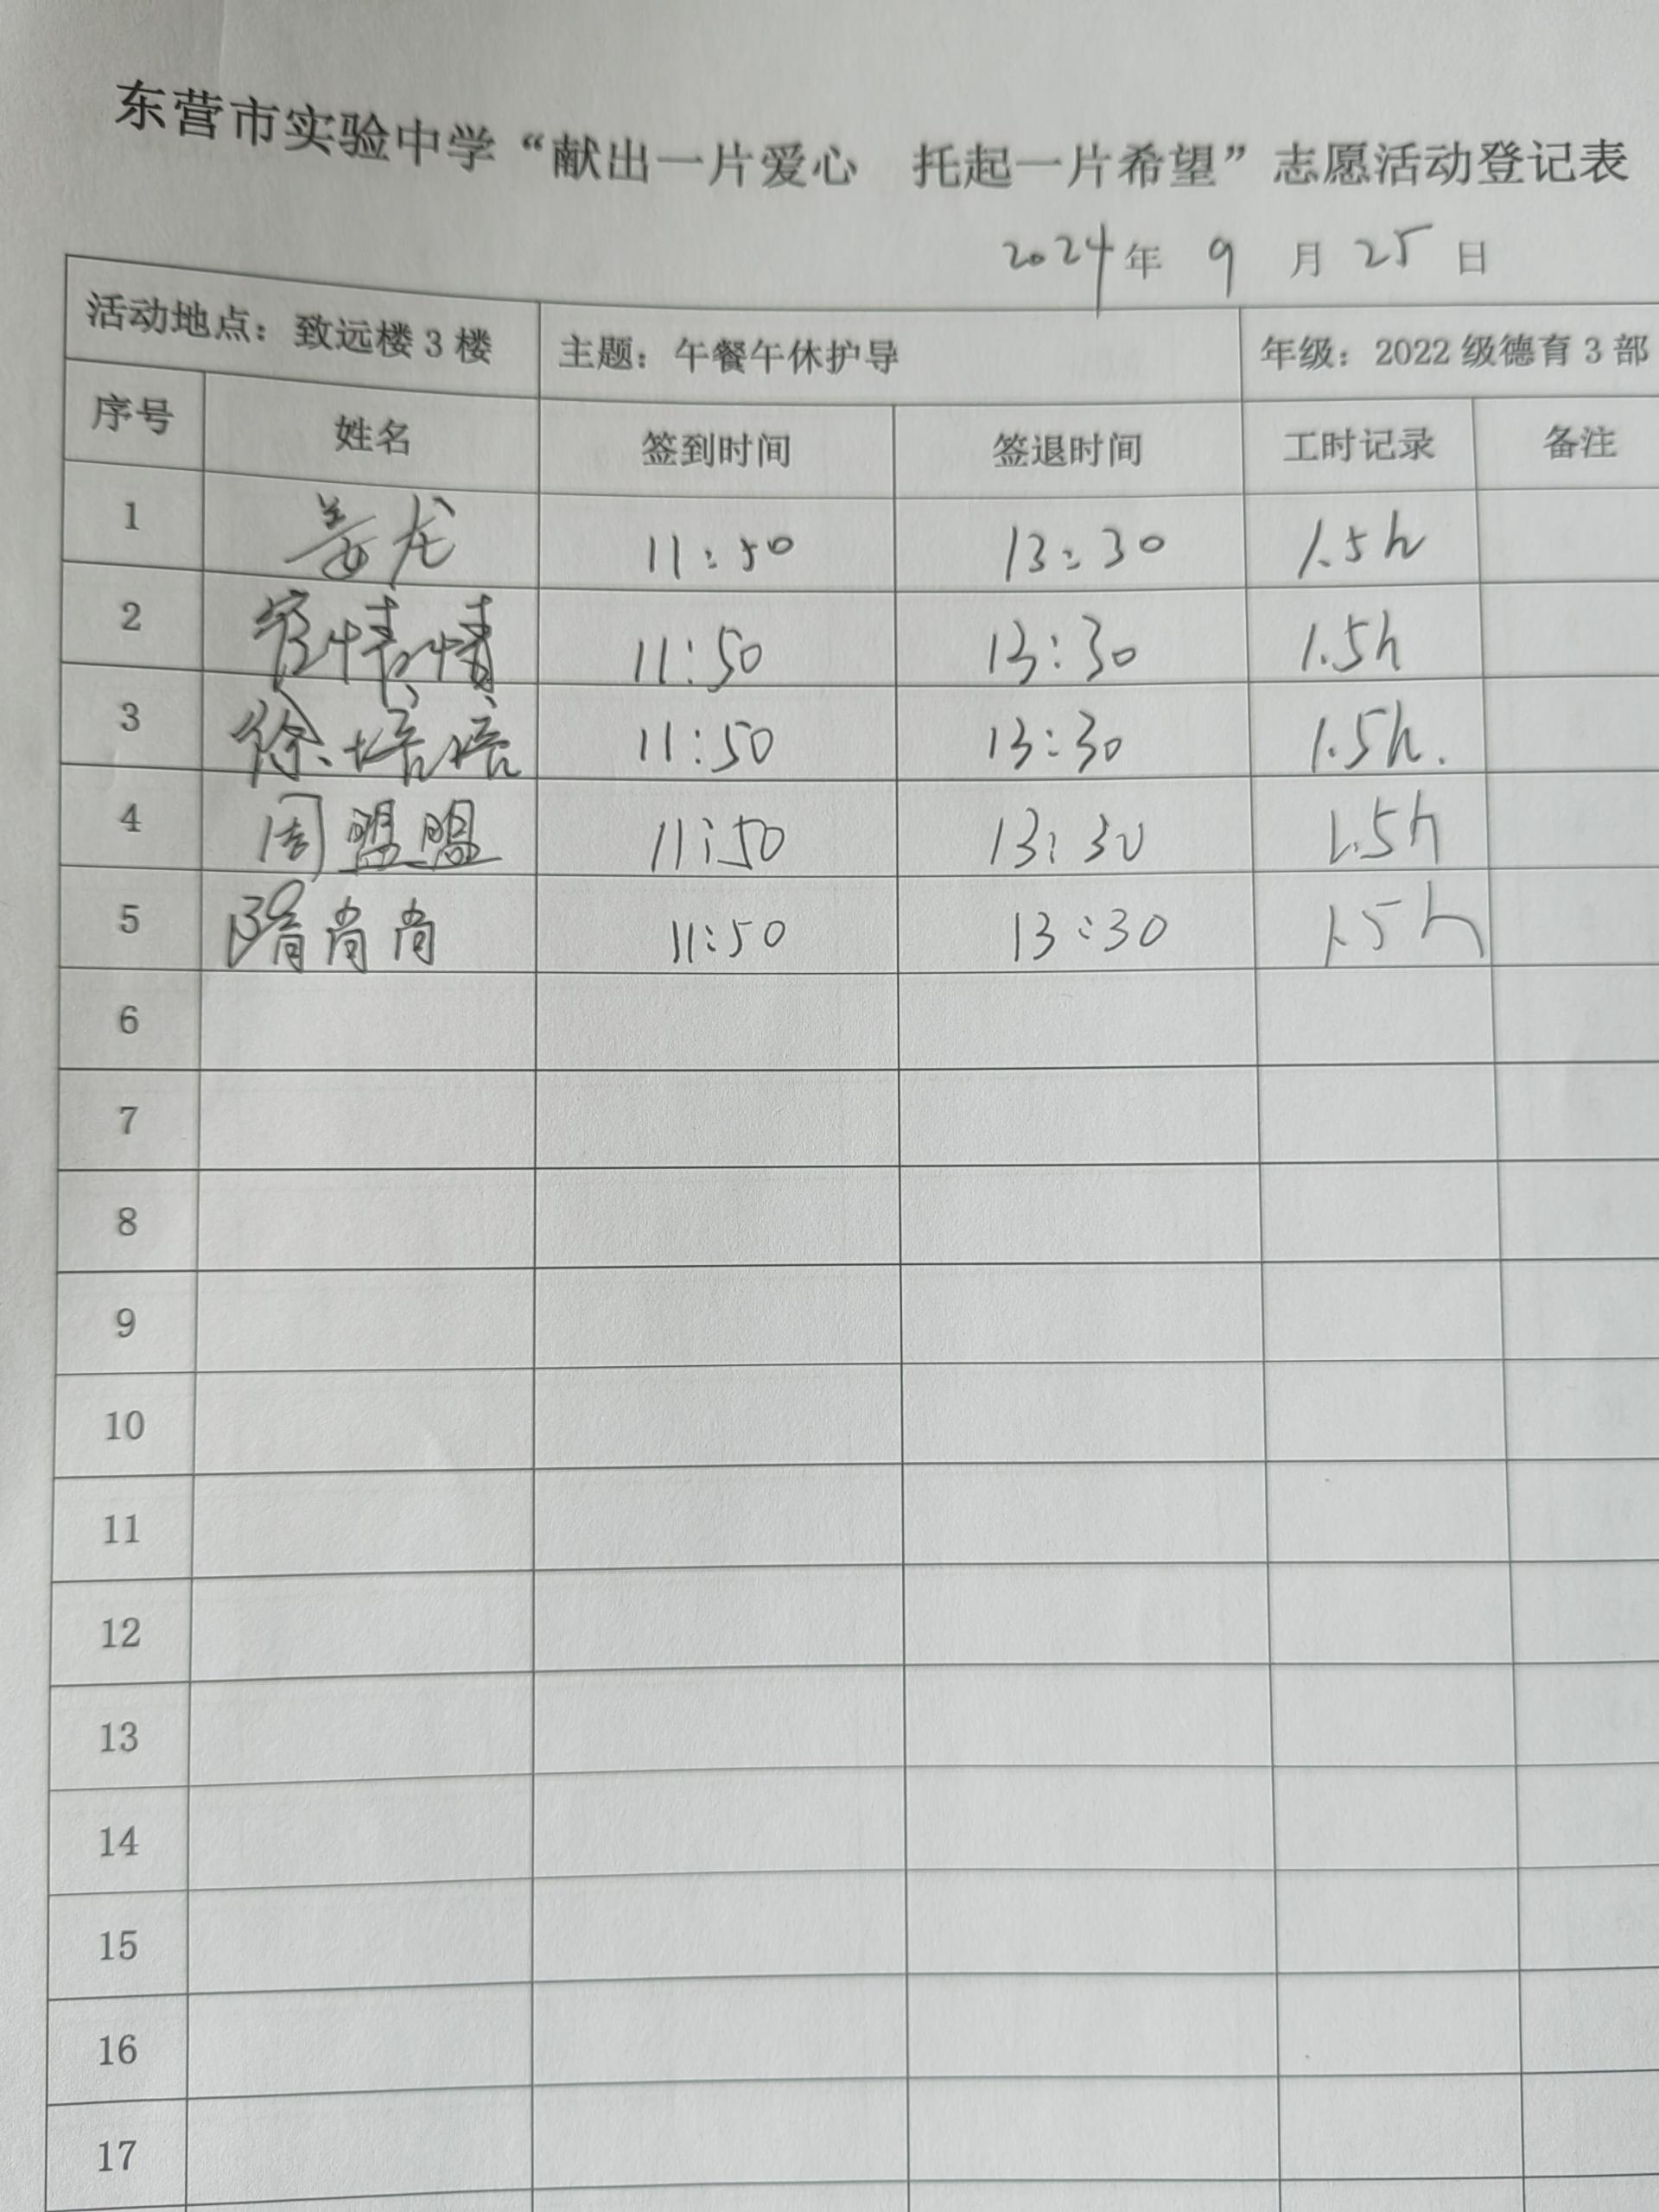 东营市实验中学“献出一片爱心 托起一片希望”志愿活动登记表
2024年 9 月 25 日
活动地点：致远楼 3 楼 主题：午餐午休护导 年级：2022 级德育 3 部
序号 姓名 签到时间 签退时间 工时记录 备注
1 姜龙 11:50 13:30 1.5h
2 情情 11:50 13:30 1.5h
3 徐培培 11:50 13:30 1.5h.
4 周盟盟 11:50 13:30 1.5h
5 隋尚尚 11:50 13:30 1.5h
6
7
8
9
10
11
12
13
14
15
16
17